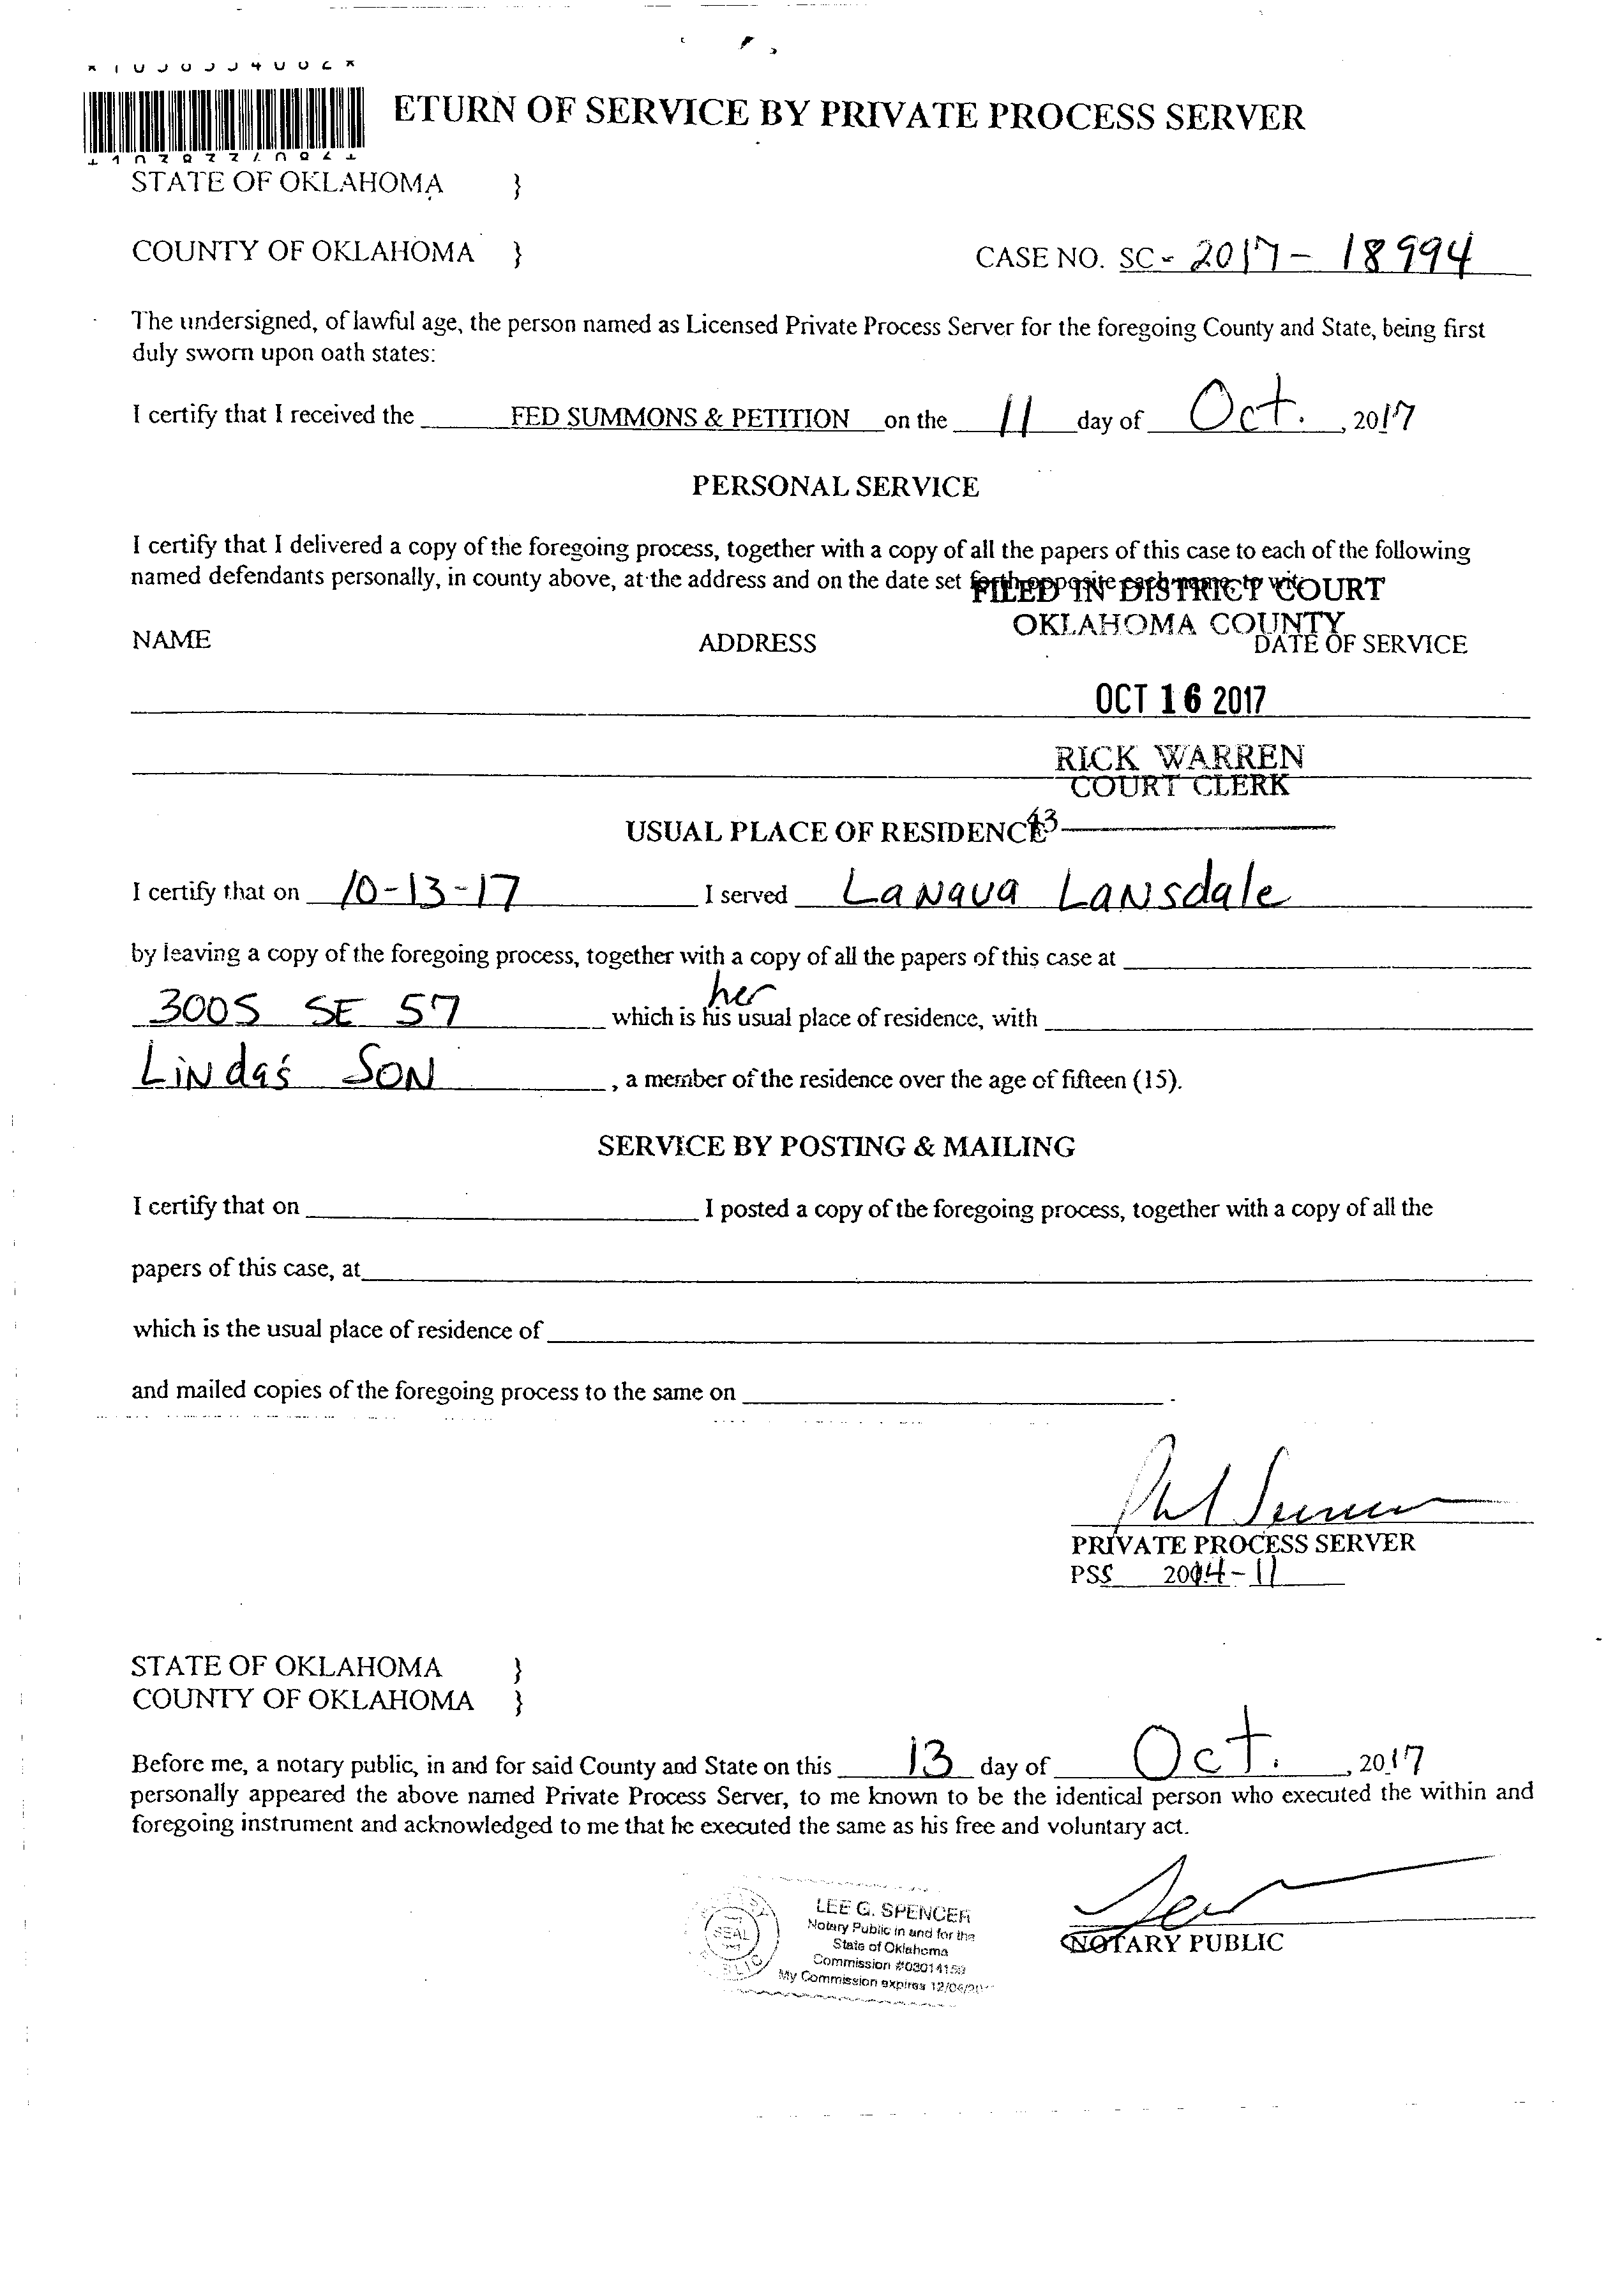 ETURN OF SERVICE BY PRIVATE PROCESS SERVER
STATE OF OKLAHOMA }
COUNTY OF OKLAHOMA }
CASE NO. SC - 2017 - 18994
The undersigned, of lawful age, the person named as Licensed Private Process Server for the foregoing County and State, being first
duly sworn upon oath states:
I certify that I received the FED SUMMONS & PETITION on the 11 day of Oct. , 2017
PERSONAL SERVICE
I certify that I delivered a copy of the foregoing process, together with a copy of all the papers of this case to each of the following
named defendants personally, in county above, at the address and on the date set forth opposite each name, to wit:
FILED IN DISTRICT COURT
OKLAHOMA COUNTY
NAME ADDRESS DATE OF SERVICE
OCT 16 2017
RICK WARREN
COURT CLERK
43
USUAL PLACE OF RESIDENCE
I certify that on 10-13-17 I served LaNaua LaNsdale
by leaving a copy of the foregoing process, together with a copy of all the papers of this case at
her
3005 SE 57 which is his usual place of residence, with
LiNda's SoN , a member of the residence over the age of fifteen (15).
SERVICE BY POSTING & MAILING
I certify that on I posted a copy of the foregoing process, together with a copy of all the
papers of this case, at
which is the usual place of residence of
and mailed copies of the foregoing process to the same on .
PRIVATE PROCESS SERVER
PSS 2014-11
STATE OF OKLAHOMA }
COUNTY OF OKLAHOMA }
Before me, a notary public, in and for said County and State on this 13 day of Oct. , 2017
personally appeared the above named Private Process Server, to me known to be the identical person who executed the within and
foregoing instrument and acknowledged to me that he executed the same as his free and voluntary act.
SEAL
LEE G. SPENCER
Notary Public in and for the
State of Oklahoma
Commission
My Commission expires
NOTARY PUBLIC